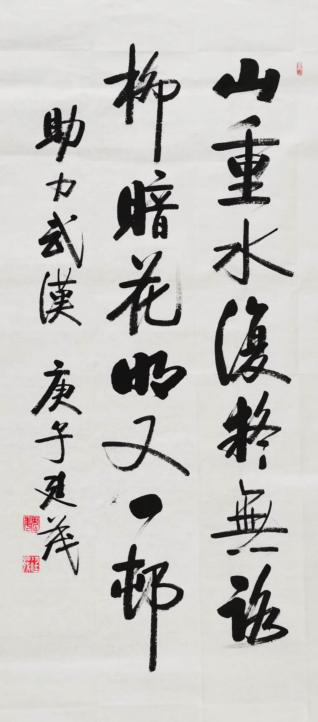 山重水復疑無路
柳暗花明又一邨
助力武漢 庚子建茂